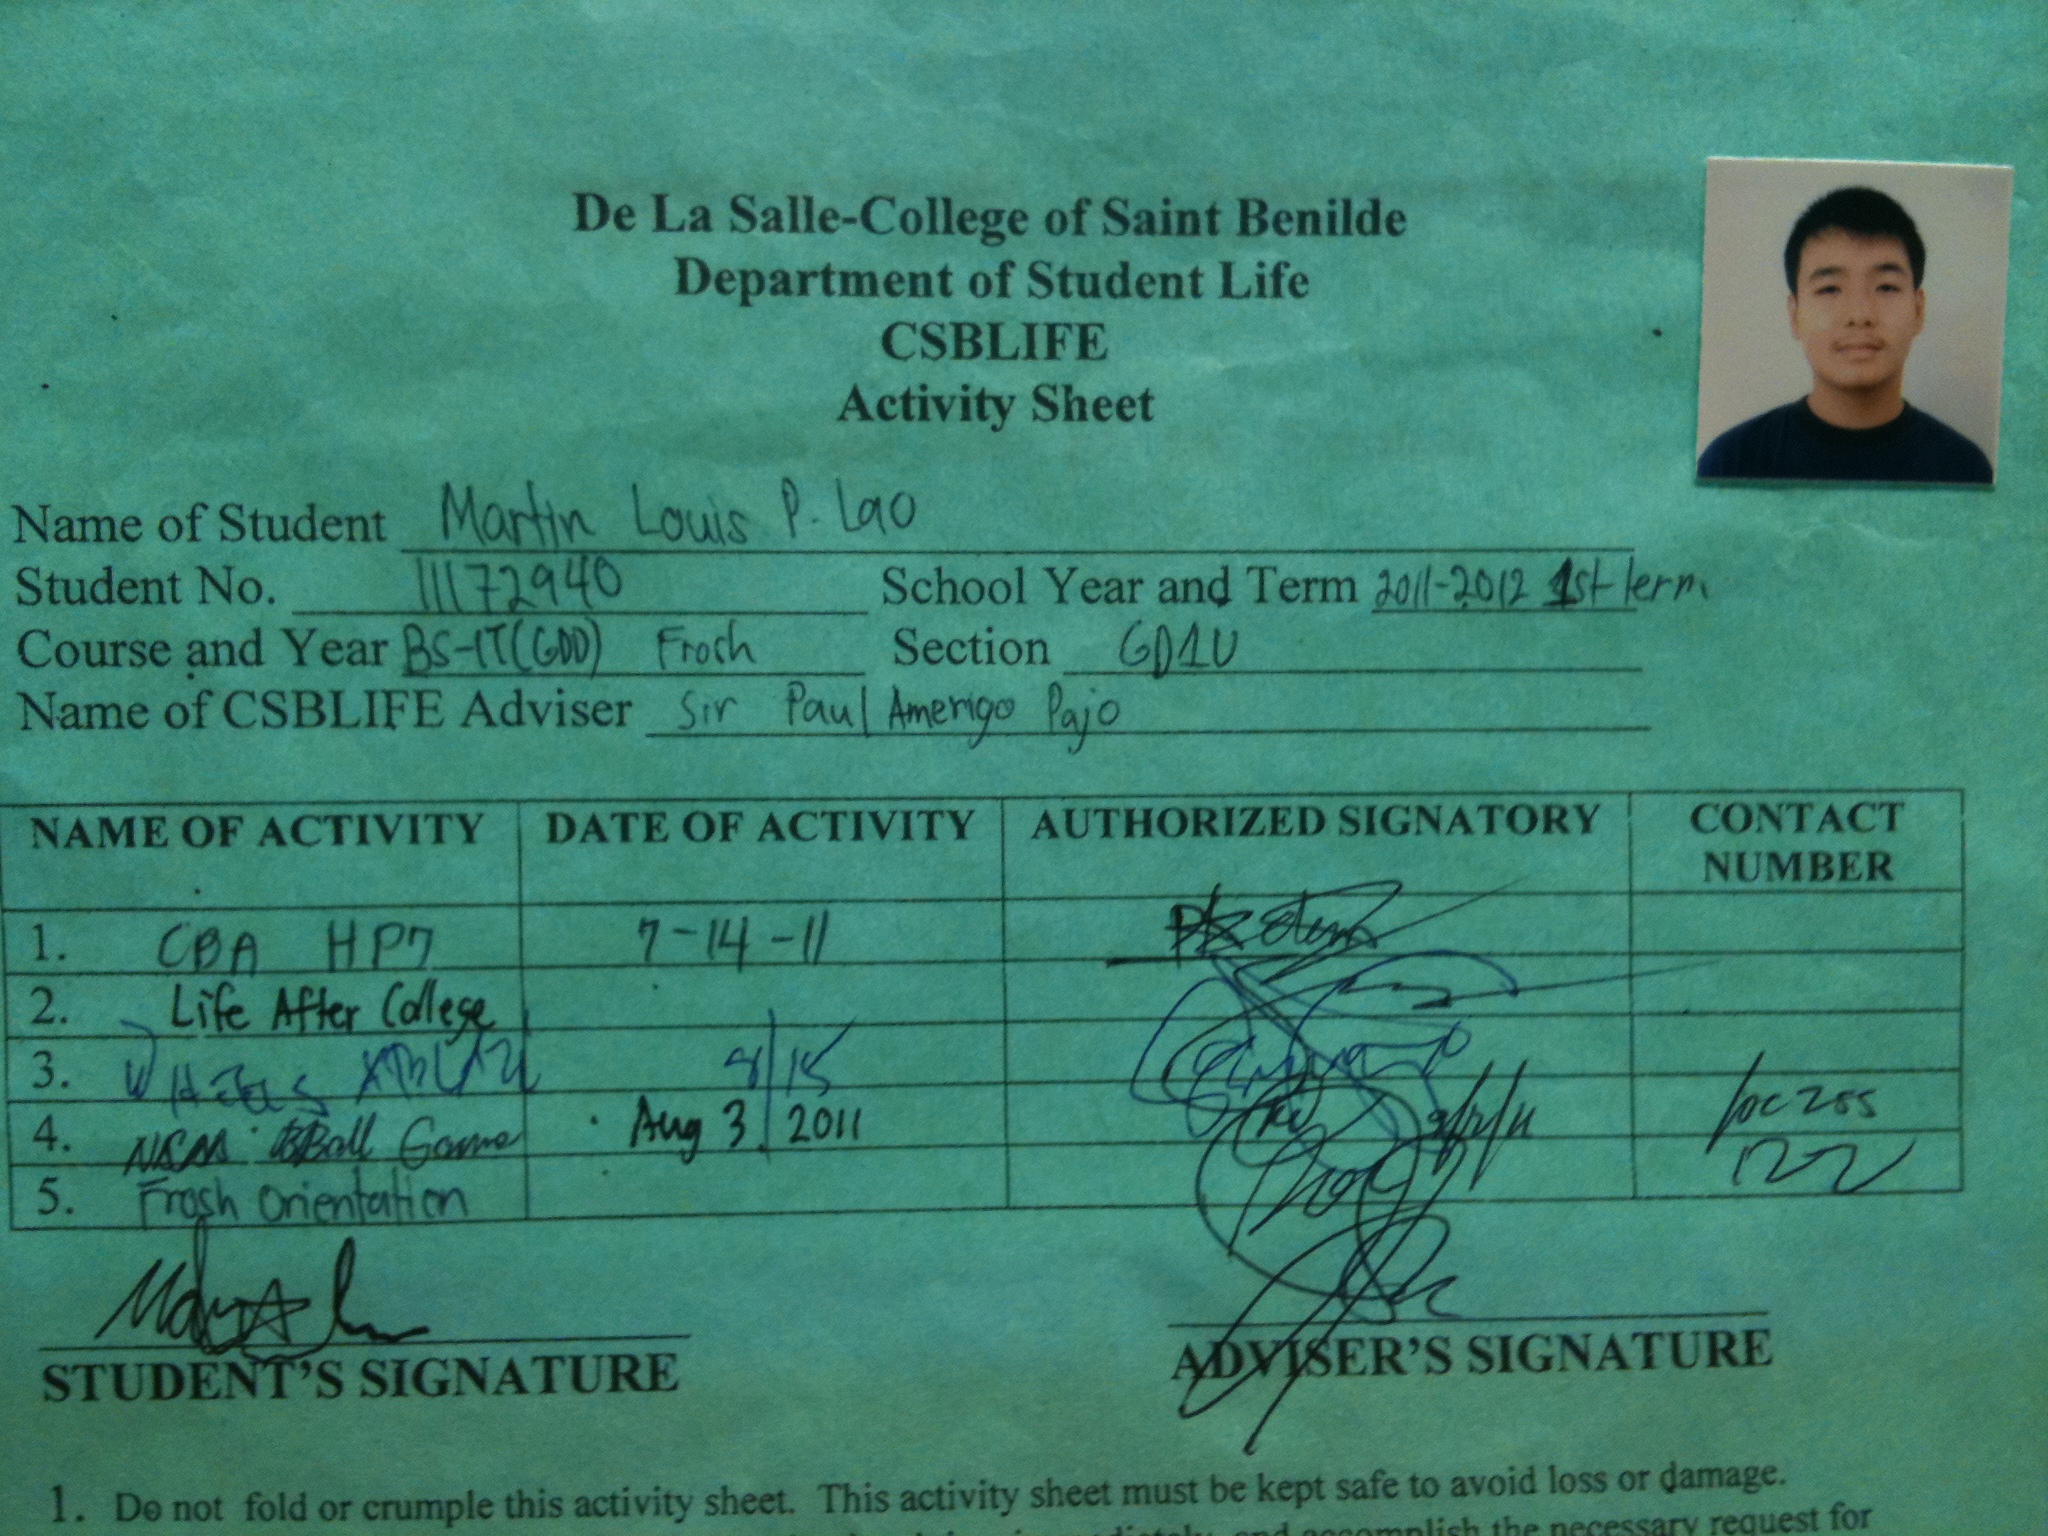 De La Salle-College of Saint Benilde
Department of Student Life
CSBLIFE
Activity Sheet
Name of Student Martin Louis P. Lao
Student No. 11172940 School Year and Term 2011-2012 1st term
Course and Year BS-IT(GDD) Frosh Section GD1U
Name of CSBLIFE Adviser Sir Paul Amerigo Pajo
NAME OF ACTIVITY DATE OF ACTIVITY AUTHORIZED SIGNATORY CONTACT NUMBER
1. CBA HP7 7-14-11
2. Life After College
3. 8/15
4. BBall Game Aug 3 2011 loc 255
5. Frosh Orientation
STUDENT'S SIGNATURE ADVISER'S SIGNATURE
1. Do not fold or crumple this activity sheet. This activity sheet must be kept safe to avoid loss or damage.
and accomplish the necessary request for